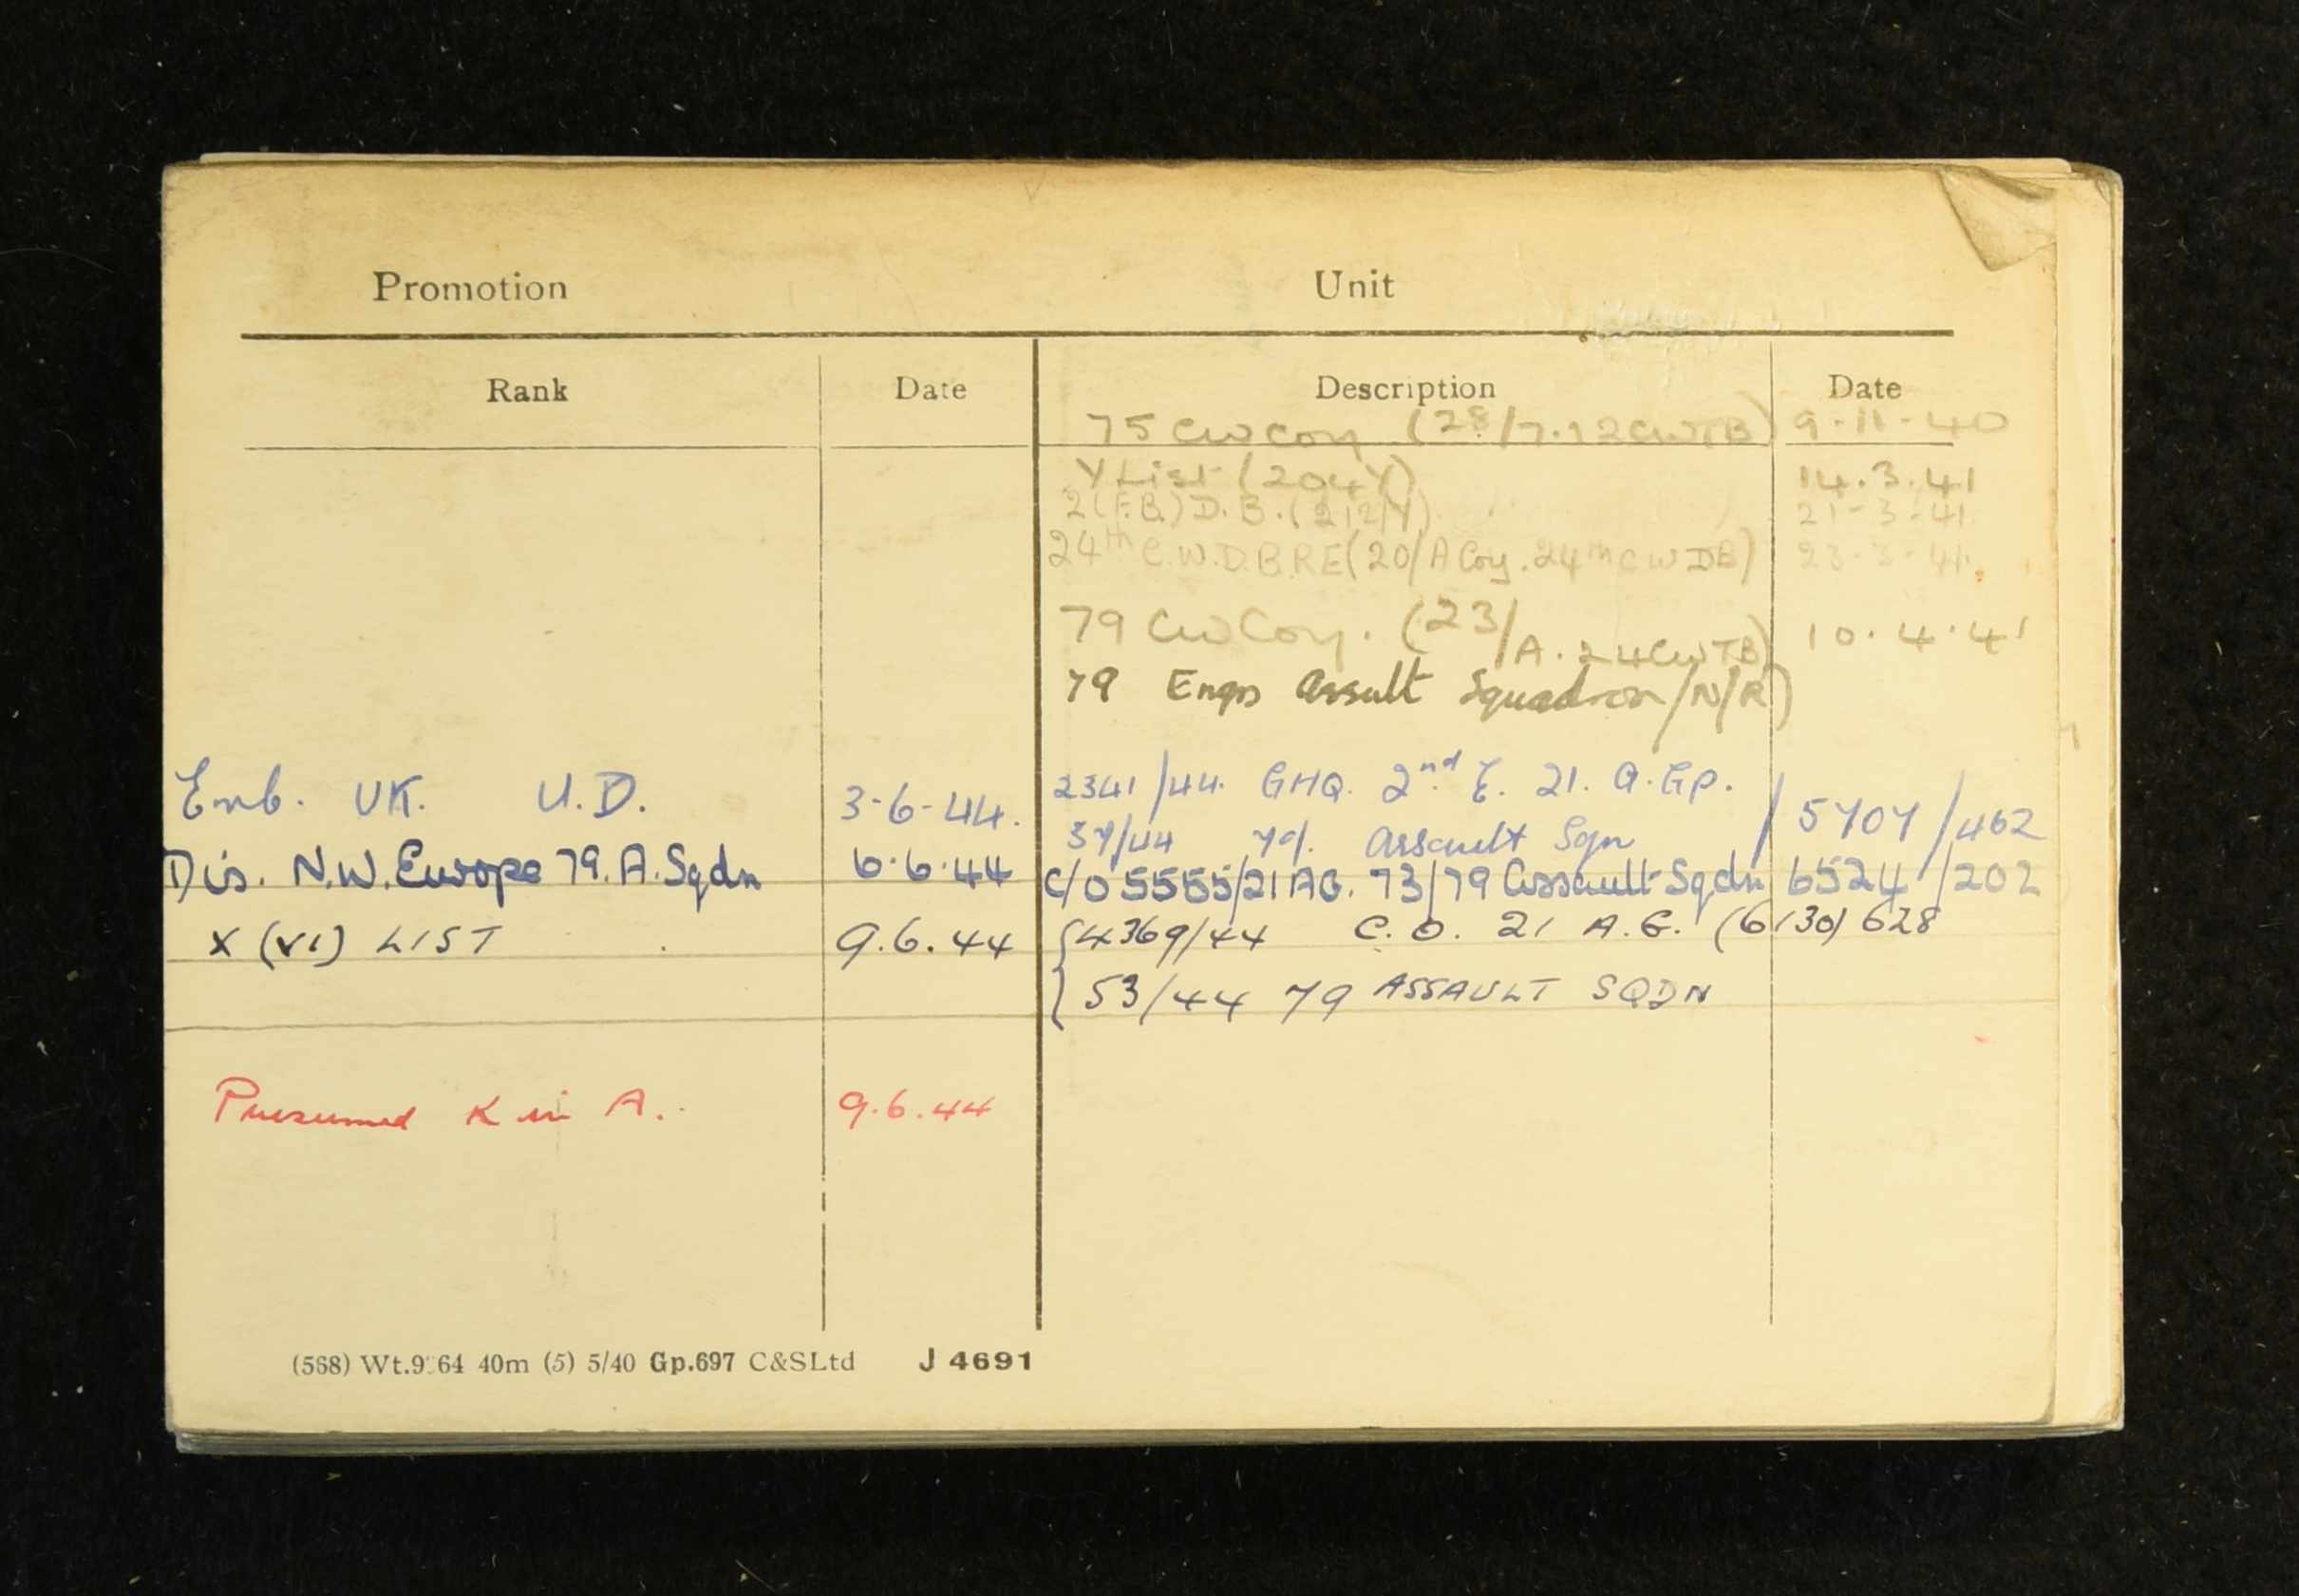 Promotion Unit
Rank Date Description Date
75 CW Coy (28/7.12CWTB) 9-11-40
Y List (204Y) 14.3.41
2(F.B.)D.B.(212/Y) 21-3-41
24th C.W.D.B.RE(20/A Coy. 24th CWDB) 23.3.41.
79 CW Coy. (23/A.24CWTB) 10.4.41
79 Engs Assult Squadron/N/R)
Emb. UK. U.D. 3-6-44. 2341/44. GHQ. 2nd E. 21. A.Gp.
37/44 79. Assault Sqn / 5707/462
Dis. N.W.Europe 79.A.Sqdn 6.6.44 C/O 5555/21AG. 73/79 Assault Sqdn 6524/202
X (vi) LIST 9.6.44 {4369/44 C.O. 21 A.G. (6130) 628
53/44 79 ASSAULT SQDN
Presumed K in A. 9.6.44
(568) Wt. 40m (5) 5/40 Gp.697 C&SLtd J 4691